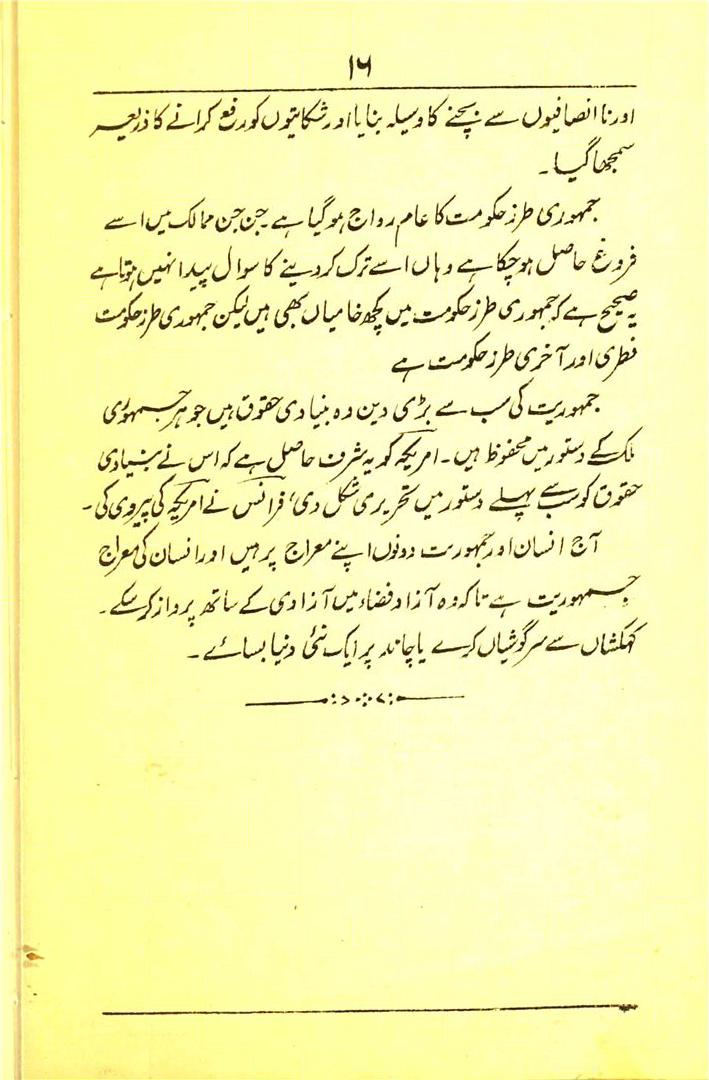 ۱۶
اور نا انصافیوں سے بچنے کا وسیلہ بنایا اور شکایتوں کو رفع کرانے کا ذریعہ
سمجھا گیا۔
جمہوری طرز حکومت کا عام رواج ہو گیا ہے۔ جن جن ممالک میں اسے
فروغ حاصل ہو چکا ہے وہاں اسے ترک کر دینے کا سوال پیدا نہیں ہوتا ہے
یہ صحیح ہے کہ جمہوری طرز حکومت میں کچھ خامیاں بھی ہیں لیکن جمہوری طرز حکومت
فطری اور آخری طرز حکومت ہے
جمہوریت کی سب سے بڑی دین وہ بنیادی حقوق ہیں جو ہر جمہوری
ملک کے دستور میں محفوظ ہیں۔ امریکہ کو یہ شرف حاصل ہے کہ اس نے بنیادی
حقوق کو سب سے پہلے دستور میں تحریری شکل دی، فرانس نے امریکہ کی پیروی کی۔
آج انسان اور جمہوریت دونوں اپنے معراج پر ہیں اور انسان کی معراج
جمہوریت ہے تاکہ وہ آزاد فضاء میں آزادی کے ساتھ پرواز کر سکے۔
کہکشاں سے سرگوشیاں کرے یا چاند پر ایک نئی دنیا بسائے۔